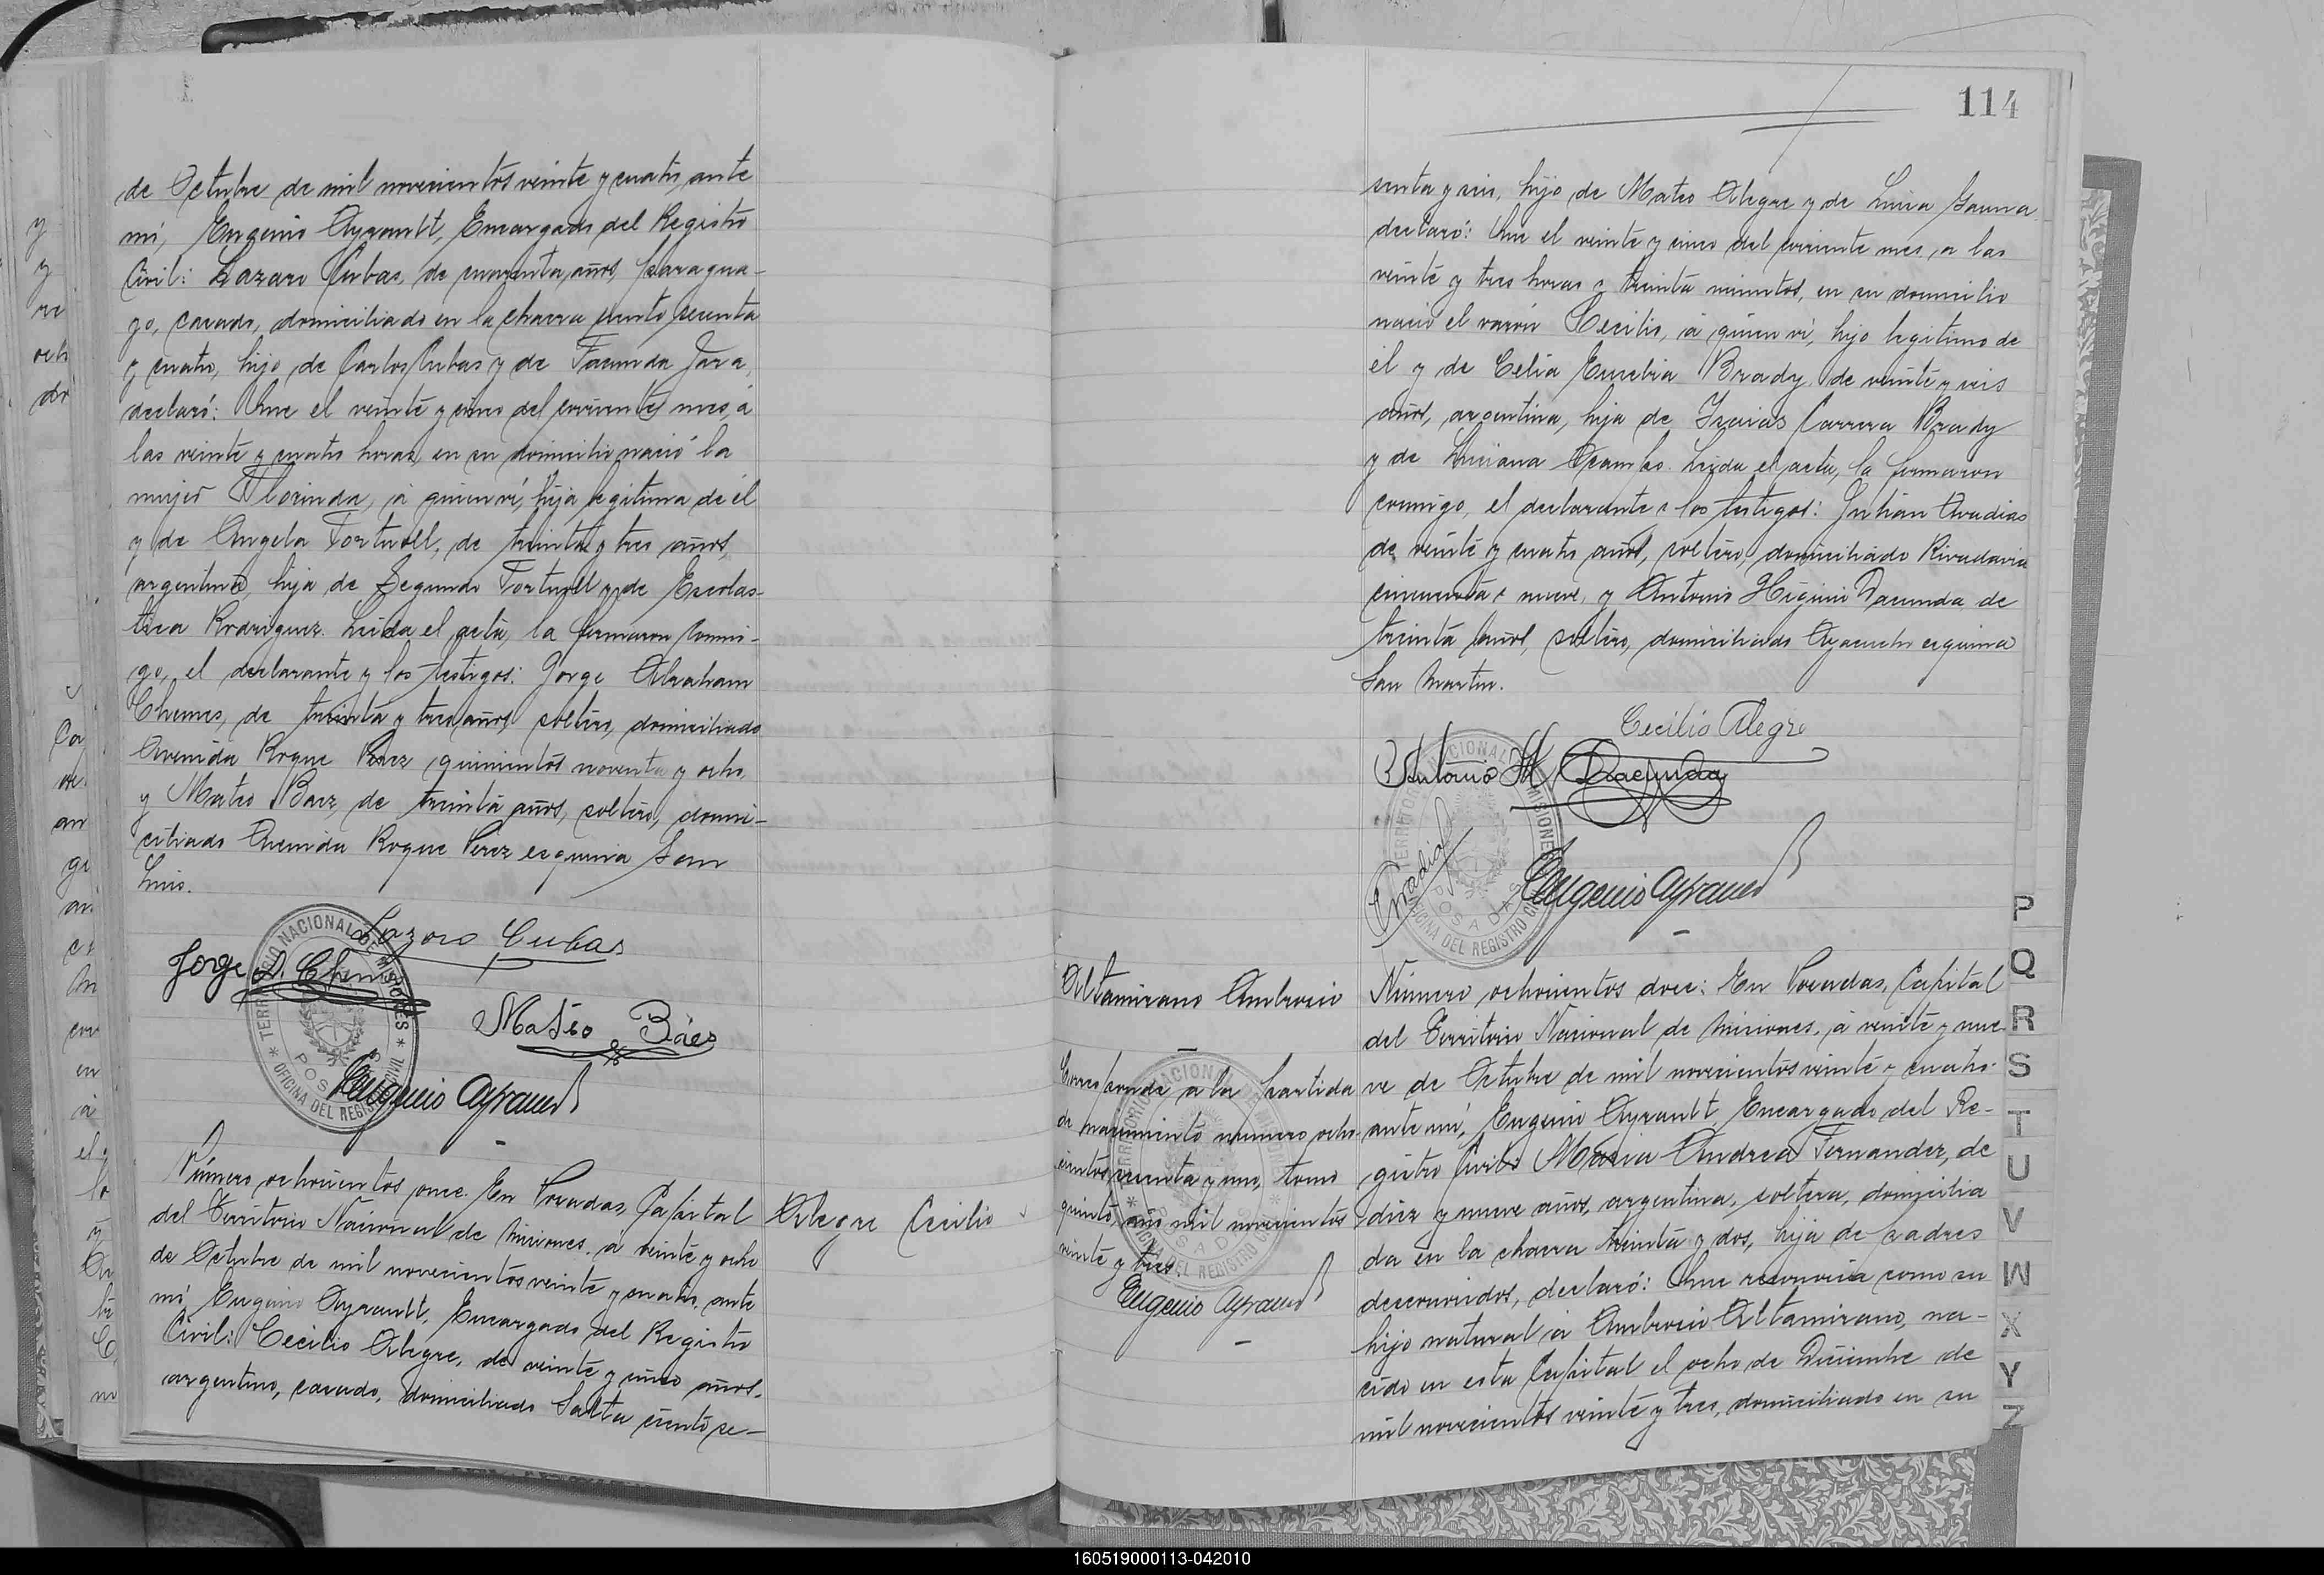 de Octubre de mil novecientos veinte y cuatro, ante
mí, Eugenio Ayrault, Encargado del Registro
Civil: Lazaro Cubas, de cuarenta años, paragua-
yo, casado, domiciliado en la chacra ciento sesenta
y cuatro, hijo de Carlos Cubas y de Facunda Jara,
declaró: Que el veinte y cinco del corriente mes, a
las veinte y cuatro horas, en su domicilio nació la
mujer Florinda, á quien ví, hija legitima de él
y de Angela Fortwell, de treinta y tres años,
argentina, hija de Segundo Fortwell y de Escolas-
tica Rodriguez. Leida el acta, la firmaron conmi-
go, el declarante y los testigos: Jorge Abraham
Chemes, de treinta y tres años, soltero, domiciliado
Avenida Roque Perez quinientos noventa y ocho,
y Mateo Baez, de treinta años, soltero, domi-
ciliado Avenida Roque Perez esquina San
Luis.
Lazaro Cubas
Jorge A. Chemes
Mateo Báes
Eugenio Ayrault
TERRITORIO NACIONAL DE MISIONES
POSADAS
OFICINA DEL REGISTRO CIVIL
Número ochocientos once. En Posadas, Capital
del Territorio Nacional de Misiones, a veinte y ocho
de Octubre de mil novecientos veinte y cuatro, ante
mí Eugenio Ayrault, Encargado del Registro
Civil: Cecilio Alegre, de veinte y cinco años,
argentino, casado, domiciliado Salta ciento se-
Alegre Cecilio
114
senta y seis, hijo de Mateo Alegre y de Luisa Gauna
declaró: Que el veinte y cinco del corriente mes, a las
veinte y tres horas y treinta minutos, en su domicilio
nació el varón Cecilio, á quien ví, hijo legitimo de
él y de Celia Eusebia Brady, de veinte y seis
años, argentina, hija de Isaias Carrera Brady
y de Luciana Ocampo. Leida el acta, la firmaron
conmigo, el declarante y los testigos: Julián Anadias
de veinte y cuatro años, soltero, domiciliado Rivadavia
cincuenta y nueve, y Antonio Higinio Dacunda de
treinta años, soltero, domiciliado Ayacucho esquina
San Martin.
Cecilio Alegre
Antonio H Dacunda
Eugenio Ayrault
TERRITORIO NACIONAL DE MISIONES
POSADAS
OFICINA DEL REGISTRO CIVIL
Altamirano Ambrosio
Corresponde a la partida
de nacimiento numero ocho
cientos sesenta y uno, tomo
quinto, año mil novecientos
veinte y tres.
Eugenio Ayrault
TERRITORIO NACIONAL DE MISIONES
POSADAS
OFICINA DEL REGISTRO CIVIL
Número ochocientos doce: En Posadas, Capital
del Territorio Nacional de Misiones, á veinte y nue
ve de Octubre de mil novecientos veinte y cuatro.
ante mí, Eugenio Ayrault, Encargado del Re-
gistro Civil: Maria Andrea Fernandez, de
diez y nueve años, argentina, soltera, domicilia
da en la chacra treinta y dos, hija de padres
desconocidos, declaró: Que reconocia como su
hijo natural á Ambrosio Altamirano, na-
cido en esta Capital el ocho de Diciembre de
mil novecientos veinte y tres, domiciliado en su
P
Q
R
S
T
U
V
W
X
Y
Z
160519000113-042010